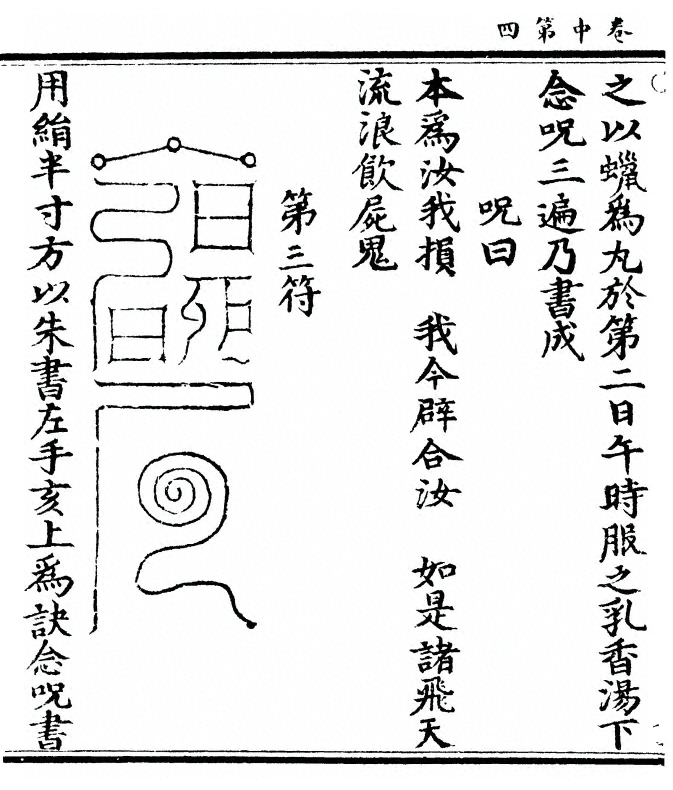 卷中第四
之以蠟爲丸於第二日午時服之乳香湯下
念呪三遍乃書成
呪曰
本爲汝我損　我今辟合汝　如是諸飛天
流浪飲屍鬼
第三符
用絹半寸方以朱書左手亥上爲訣念呪書